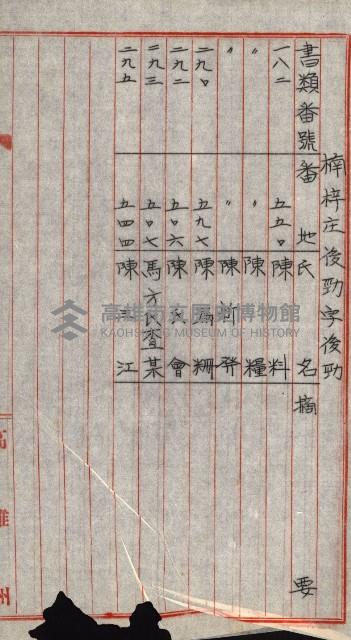 楠梓庄後勁字後勁
書類番號 番地 氏名 摘要
一八二 五五〇 陳料
〃 〃 陳糧
〃 〃 陳刘發
二九〇 五九七 陳
二九二 五〇六 陳氏會
二九三 五〇七 馬方氏查某
二九五 五四四 陳 江
高雄市立歷史博物館
KAOHSIUNG MUSEUM OF HISTORY
高雄州